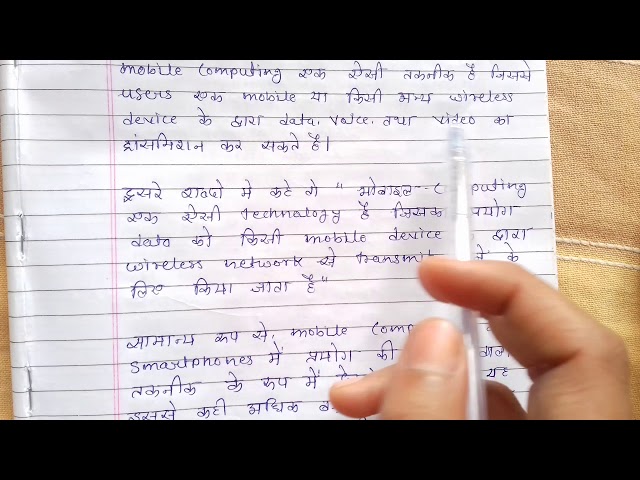 mobile Computing एक ऐसी तकनीक है जिससे
users एक mobile या किसी अन्य wireless
device के द्वारा data, voice, तथा video का
ट्रांसमिशन कर सकते है।
दूसरे शब्दो मे कहे तो " मोबाइल-
एक ऐसी technology है
data को किसी mobile device द्वारा
wireless network से के
लिए किया जाता है"
सामान्य रूप से, mobile
smartphones में प्रयोग की
तकनीक के रूप में यह
इससे कही अधिक